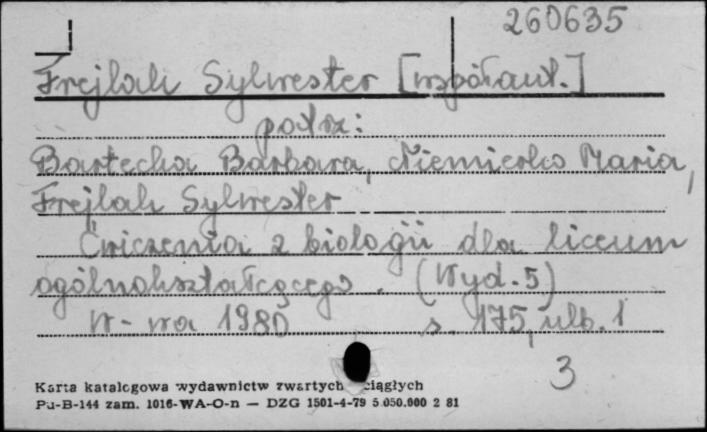 260635
Frejlak Sylwester [współaut.]
patrz:
Bartecka Barbara, Niemierko Maria,
Frejlak Sylwester
Ćwiczenia z biologii dla liceum
ogólnokształcącego. (Wyd. 5)
W-wa 1980 s. 175, nlb. 1
3
Karta katalogowa wydawnictw zwartych ciągłych
Pu-B-144 zam. 1016-WA-O-n — DZG 1501-4-79 5.050.000 2 81